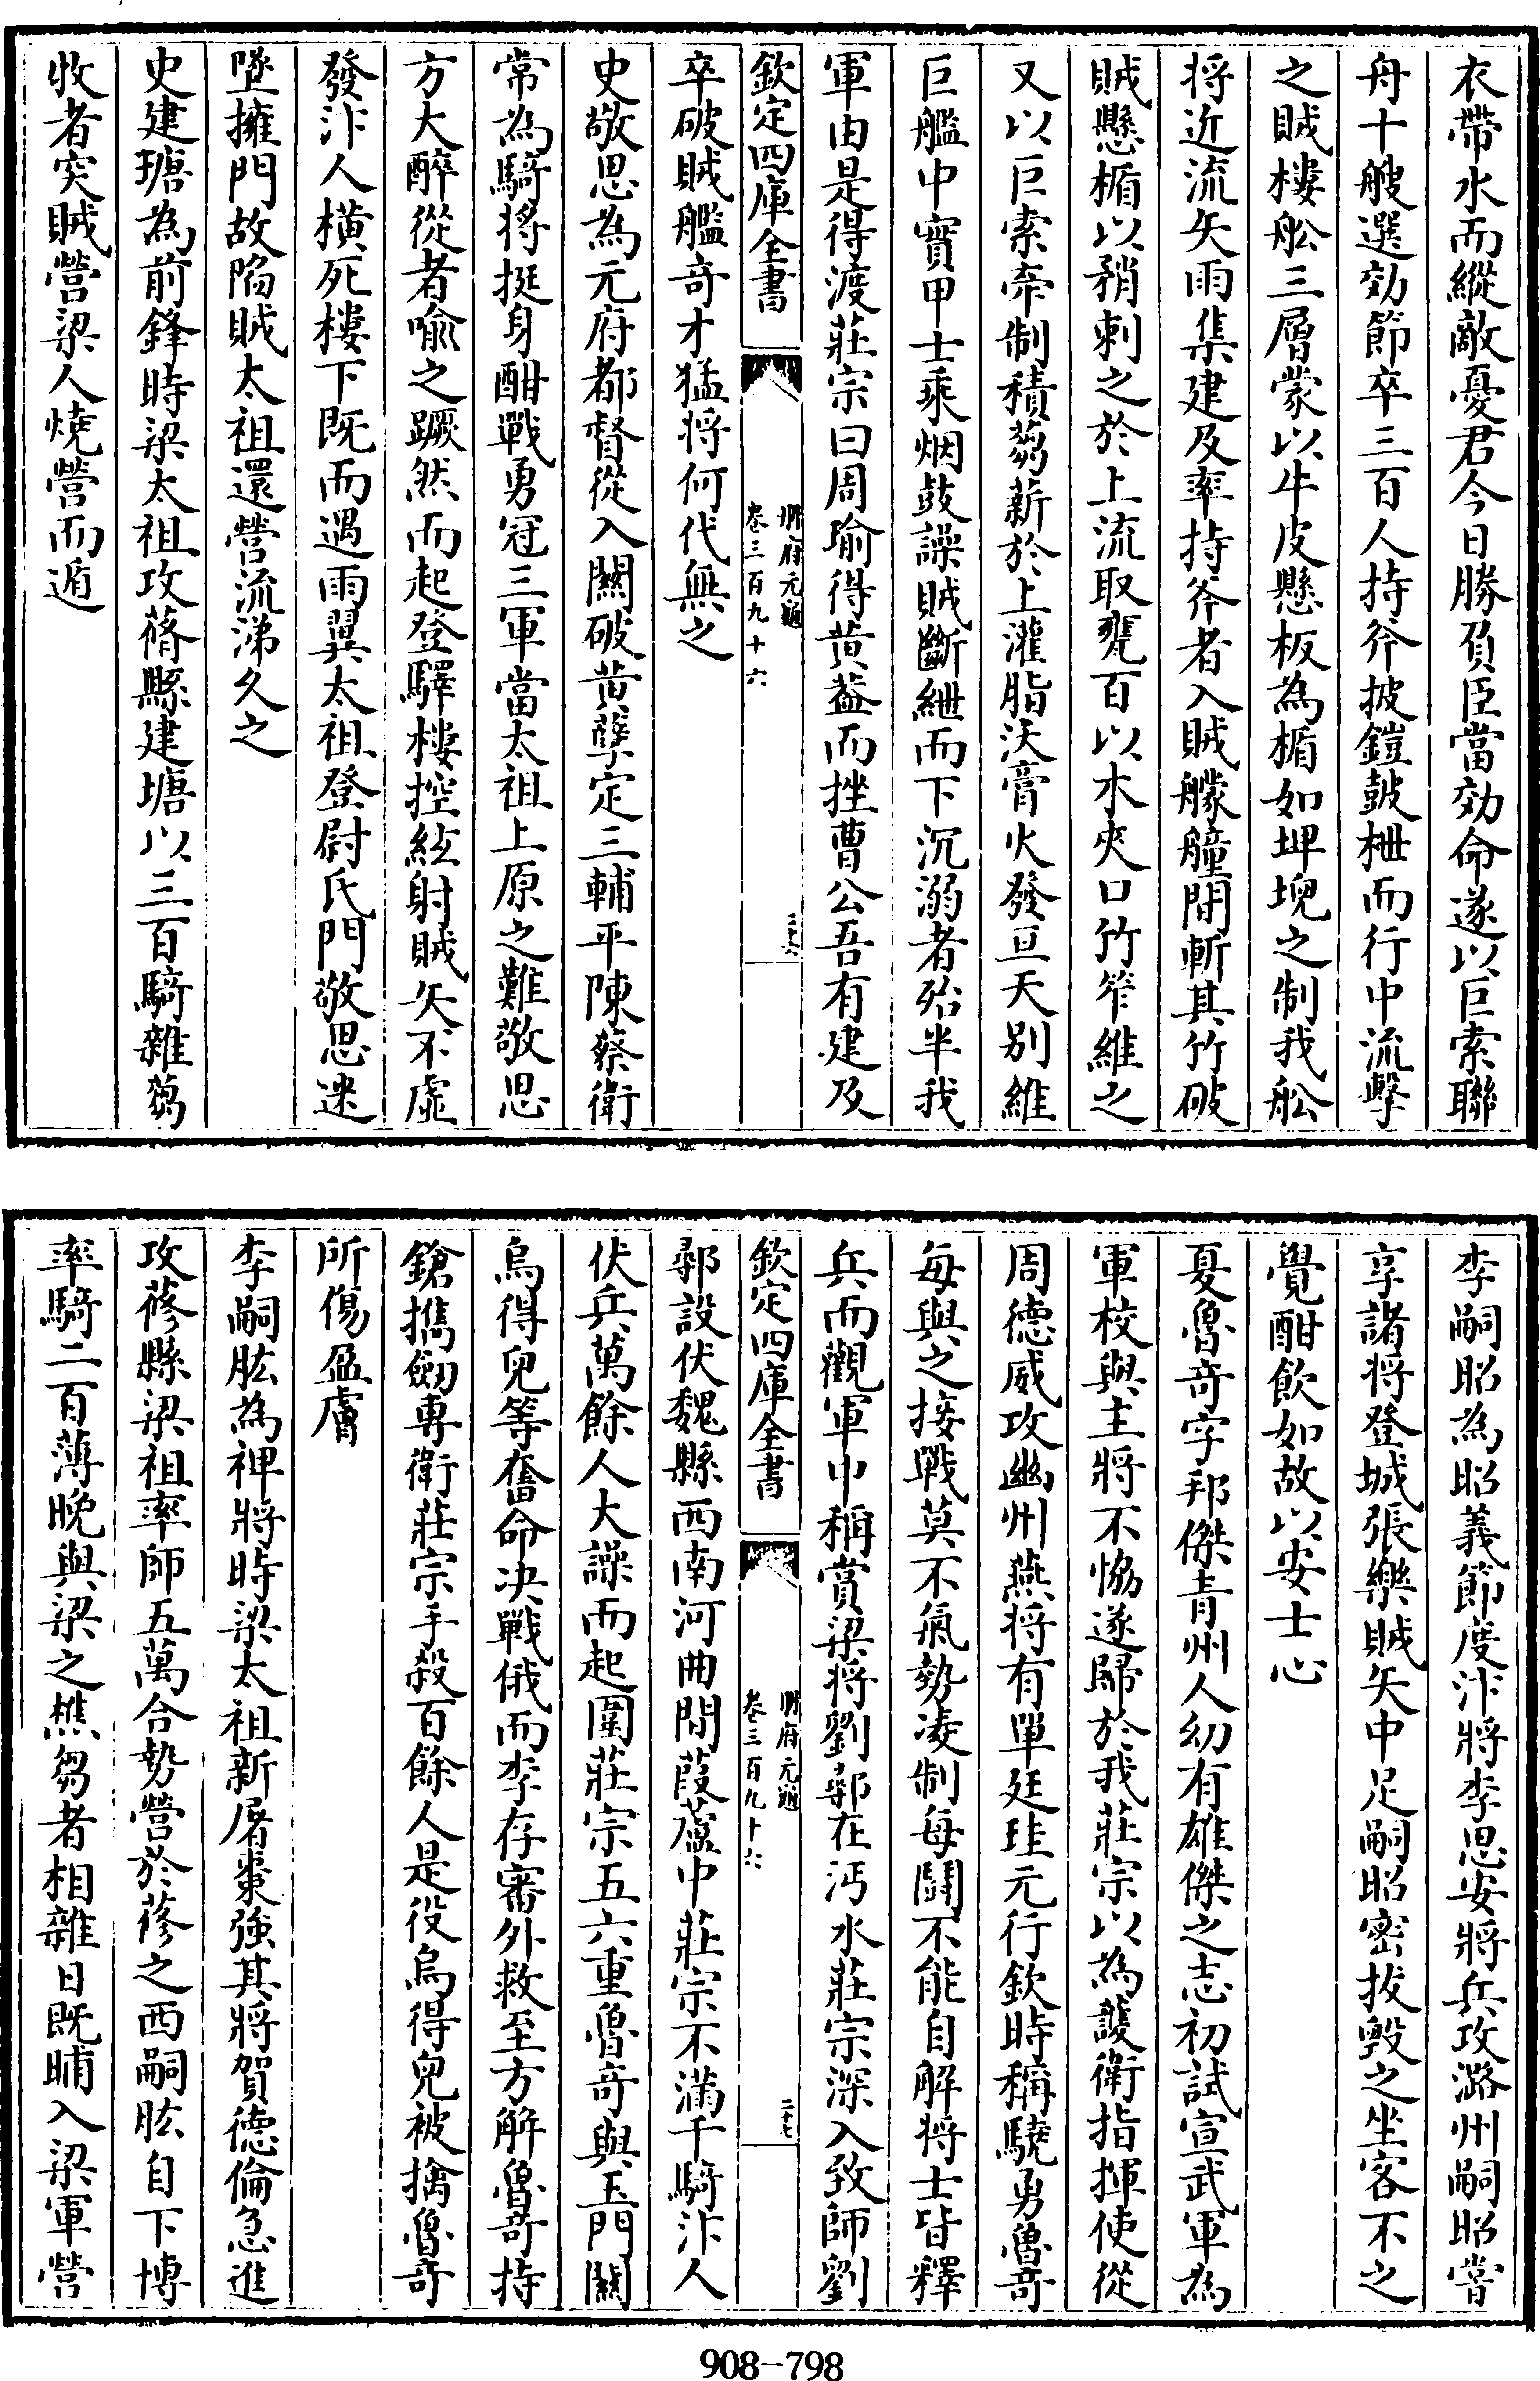 衣帶水而縱敵憂君今日勝負臣當効命遂以巨索聯
舟十艘選効節卒三百人持斧披鎧鼓枻而行中流擊
之賊樓舩三層蒙以牛皮懸板為楯如埤堄之制我舩
将近流矢雨集建及率持斧者入賊艨艟間斬其竹破
賊懸楯以矟刺之於上流取甕百以木夾口竹笮維之
又以巨索牽制積蒭薪於上灌脂沃膏火發亘天别維
巨艦中實甲士乘烟鼓譟賊斷紲而下沉溺者殆半我
軍由是得渡莊宗曰周瑜得黄葢而挫曹公吾有建及
欽定四庫全書
冊府元龜
卷三百九十六
二十六
卒破賊艦奇才猛将何代無之
史敬思為元府都督從入關破黄孽定三輔平陳蔡衛
常為騎将挺身酣戰勇冠三軍當太祖上原之難敬思
方大醉從者喻之蹶然而起登驛樓控絃射賊矢不虚
發汴人横死樓下既而遇雨翼太祖登尉氏門敬思迷
墜擁門故陷賊太祖還營流涕久之
史建瑭為前鋒時梁太祖攻蓨縣建塘以三百騎雜蒭
牧者突賊營梁人燒營而遁
李嗣昭為昭義節度汴將李思安將兵攻潞州嗣昭嘗
享諸将登城張樂賊矢中足嗣昭密拔毁之坐客不之
覺酣飲如故以安士心
夏魯奇字邦傑青州人幼有雄傑之志初試宣武軍為
軍校與主將不恊遂歸於我莊宗以為護衛指揮使從
周德威攻幽州燕将有單廷珪元行欽時稱驍勇魯奇
每與之接戰莫不氣勢凌制每鬬不能自解将士皆釋
兵而觀軍中稱賞梁将劉鄩在沔水莊宗深入致師劉
欽定四庫全書
冊府元龜
卷三百九十六
二十七
鄩設伏魏縣西南河曲間葭蘆中莊宗不滿千騎汴人
伏兵萬餘人大譟而起圍莊宗五六重魯奇與玉門關
烏得兒等奮命決戰俄而李存審外救至方解魯奇持
鎗擕劒專衛莊宗手殺百餘人是役烏得兒被擒魯奇
所傷盈膚
李嗣肱為裨將時梁太祖新屠棗強其將賀德倫急進
攻蓨縣梁祖率師五萬合勢營於蓨之西嗣肱自下博
率騎二百薄晚與梁之樵芻者相雜日既晡入梁軍營
908-798